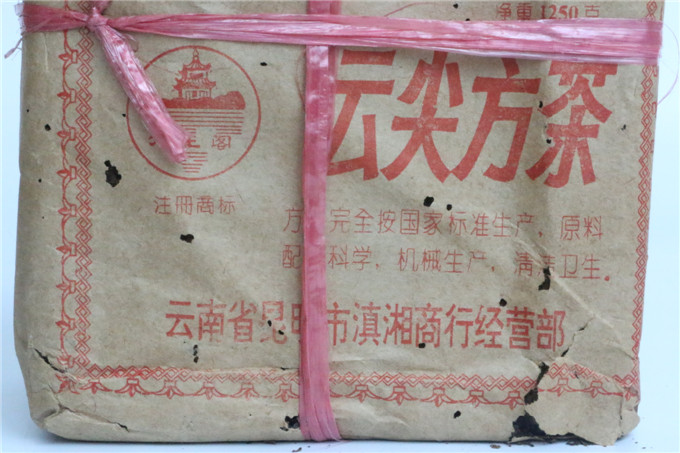 净重 1250 克
云尖方茶
阁
注冊商标
方 完全按国家标准生产，原料
配 科学，机械生产，清洁卫生。
云南省昆明市滇湘商行经营部